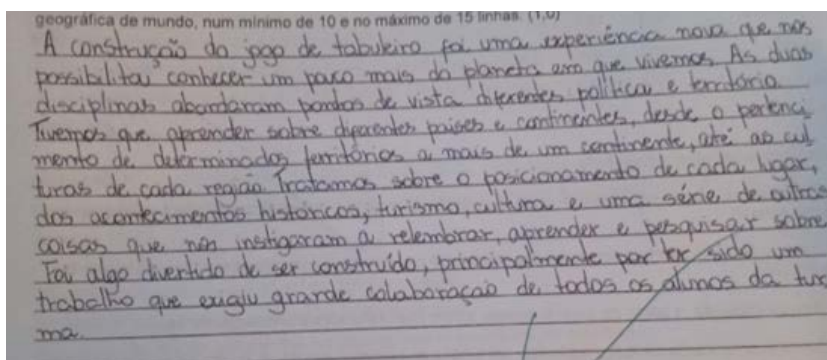 geográfica de mundo, num mínimo de 10 e no máximo de 15 linhas. (1,0)
A construção do jogo de tabuleiro foi uma experiência nova que nos
possibilitou conhecer um pouco mais do planeta em que vivemos. As duas
disciplinas abordaram pontos de vista diferentes política e território.
Tivemos que aprender sobre diferentes países e continentes, desde o pertenci
mento de determinados territórios a mais de um continente, até as cul
turas de cada região. Tratamos sobre o posicionamento de cada lugar,
dos acontecimentos históricos, turismo, cultura e uma série de outras
coisas que nos instigaram a relembrar, aprender e pesquisar sobre
Foi algo divertido de ser construído, principalmente por ter sido um
trabalho que exigiu grande colaboração de todos os alunos da tur
ma.